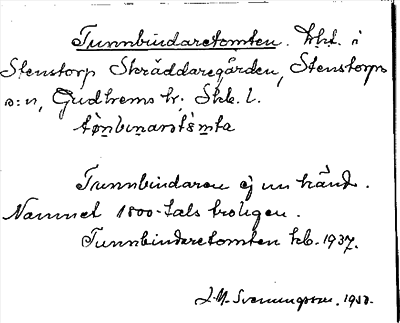 Tunnbindaretomten. hkt. i
Stenstorp Skräddaregården, Stenstorps
s:n, Gudhems hr, Skb. l.
Tunnbindaren ej nu känd.
Namnet 1800-tals troligen.
Tunnbindaretomten kb. 1937.
J.M. Svenungsson. 1950.